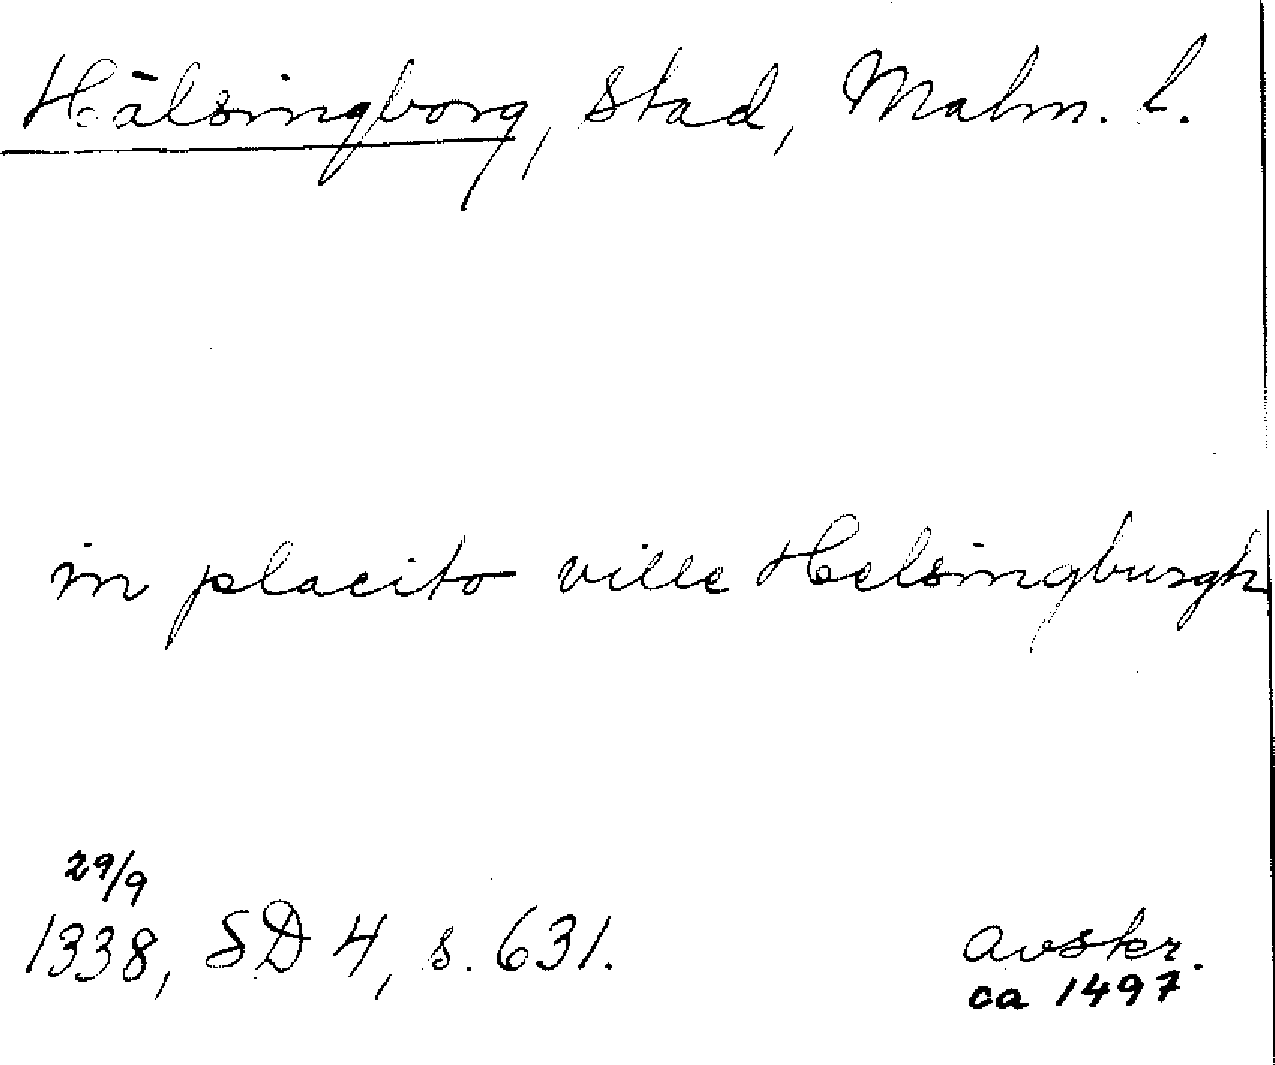 Hälsingborg, stad, Malm. l.
in placito ville Helsingburgh
29/9
1338, SD 4, s. 631.
avskr.
ca 1497